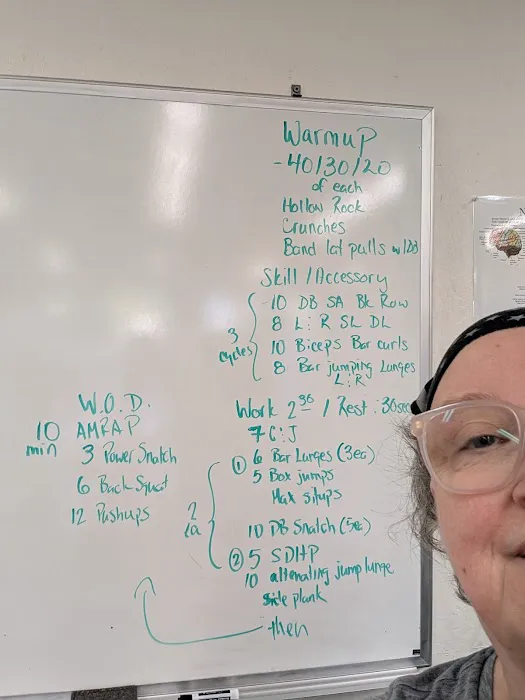 Warmup
- 40/30/20
of each
Hollow Rock
Crunches
Band lat pulls w/DB
Skill / Accessory
3 cycles
10 DB SA Bk Row
8 L:R SL DL
10 Biceps Bar curls
8 Bar jumping Lunges
L:R
Work 2:30 / Rest :30sec
7 C:J
① 6 Bar Lunges (3ea)
5 Box jumps
Max situps
2 ea
10 DB Snatch (5ea)
② 5 SDHP
10 alternating jump lunge
Side plank
then
W.O.D.
10 min AMRAP
3 Power Snatch
6 Back Squat
12 Pushups